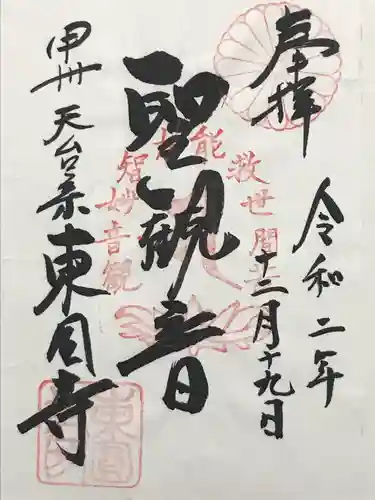 奉拝
令和二年
十二月十九日
聖観音
甲州 天台宗 東円寺
観音妙智力
能救世間苦